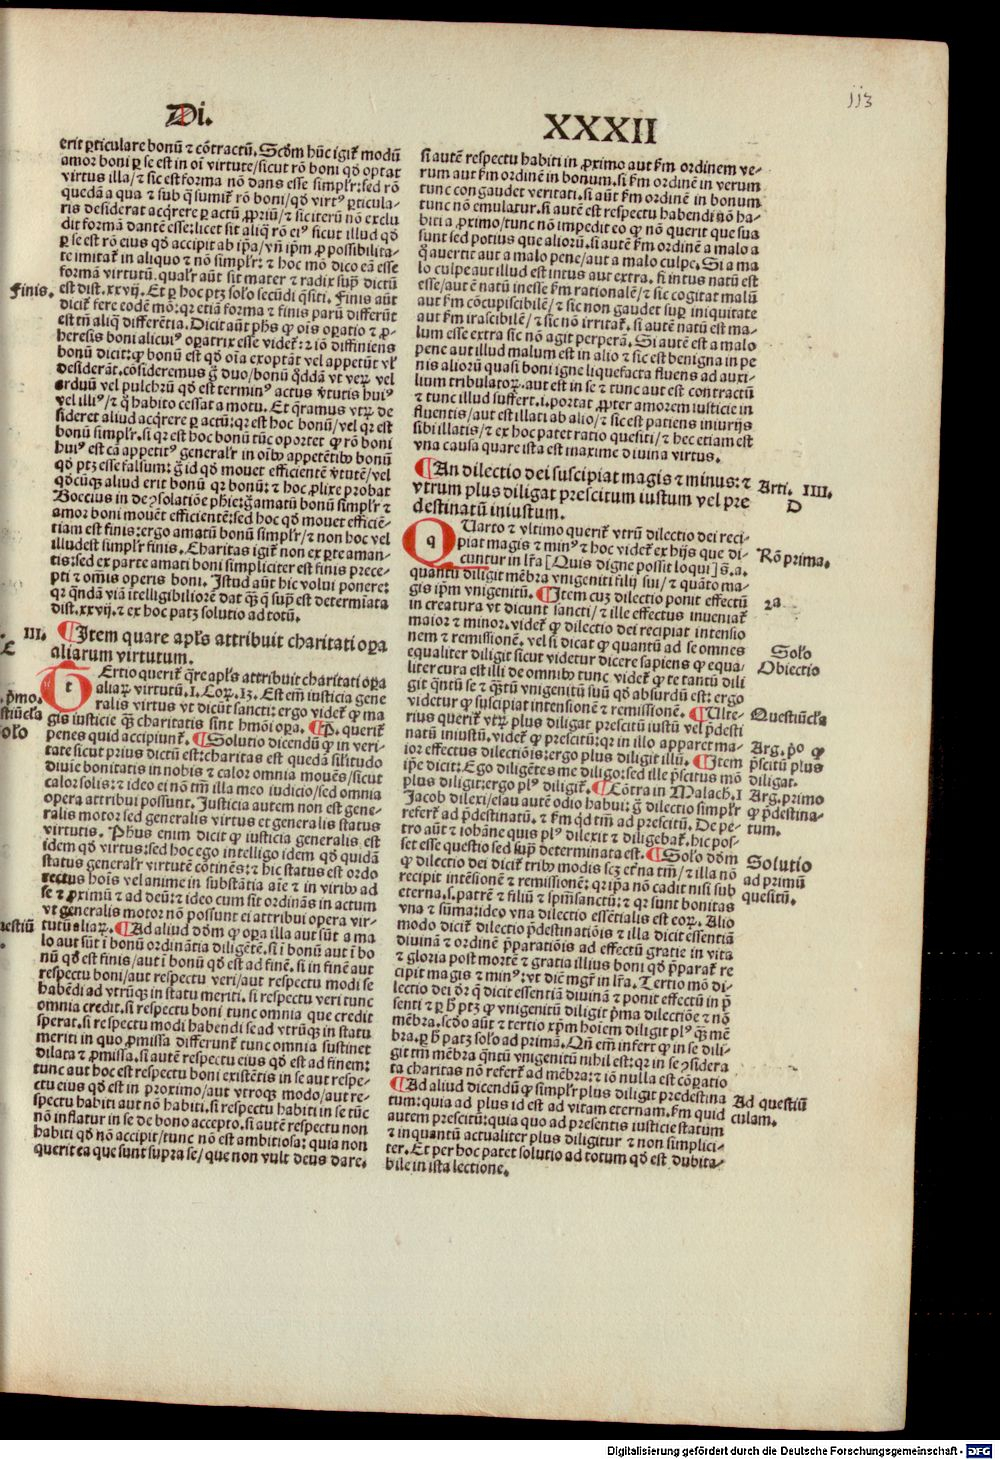 113
Di.
XXXII
erit ꝑticulare bonū ⁊ cōtractū. Scḋm hūc igit᷑ modū
amor boni ꝑ se est in oī virtute/sicut rō boni qḋ optat
virtus illa/⁊ sic est forma nō dans esse simplr̄: sed rō
quedā a qua ⁊ sub q̄ sumit᷑ rō boni/qḋ virtꝰ ꝑticula-
ris desiderat acq̄rere ꝑ actū ꝓpriū/⁊ sic iterū nō exclu
dit formā dantē esse: licet sit aliq̄ rō eiꝰ sicut illud qḋ
ꝑ se est rō eius qḋ accipit ab ip̄a/vn̄ ip̄m ꝓ possibilita-
te imitat᷑ in aliquo ⁊ nō simplr̄: ⁊ hoc mō dico eā esse
formā virtutū. qualr̄ aūt sit mater ⁊ radix sup̄ dictū
Finis.
est dist. xxvij. Et ꝑ hoc ptꝫ solo secūdi q̄siti. Finis aūt
dicit᷑ fere eodē mō: qr etiā forma ⁊ finis parū differūt
est tn̄ aliq̄ differētia. Dicit aūt ph̄s ꝙ oīs oꝑatio ⁊ ꝓ-
heresis boni alicuiꝰ oꝑatrix esse videt᷑: ⁊ iō diffiniens
bonū dicit: ꝙ bonū est qḋ oīa exoptāt vel appetūt vl᷑
desiderāt. cōsideremus ḡ duo/bonū q̄ddā vt veꝝ vel
arduū vel pulchrū qḋ est terminꝰ actus v̄tutis huiꝰ
vel illiꝰ/⁊ q̄ habito cessat a motu. Et q̄ramus vtꝝ de
sideret aliud acq̄rere ꝑ actū: qr est hoc bonū/vel qr est
bonū simplr̄. si qr est hoc bonū tūc oportet ꝙ rō boni
huiꝰ est cā appetitꝰ generalr̄ in oībꝰ appetētibꝰ bonū
qḋ ptꝫ esse falsum: ḡ id qḋ mouet efficientē v̄tutē/vel
qḋcūqꝫ aliud erit bonū qr bonū: ⁊ hoc ꝓlixe probat
Boecius in de ꝯsolatiōe phie: ḡ amatū bonū simplr̄ ⁊
amor boni mouēt efficientē: sed hoc qḋ mouet efficiē-
tiam est finis: ergo amatū bonū simplr̄/⁊ non hoc vel
illud est simplr̄ finis. Charitas igit᷑ non ex ꝑte aman-
tis: sed ex parte amati boni simpliciter est finis prece-
pti ⁊ om̄is operis boni. Istud aūt hic volui ponere:
qr q̄ndā viā itelligibiliorē dat qꝫ q̄ sup̄ est determīata
dist. xxvij. ⁊ ex hoc patꝫ solutio ad totū.
III.
E
¶Item quare apl̄s attribuit charitati oꝑa
aliarum virtutum.
tErtio querit᷑ q̄re apl̄s attribuit charitati oꝑa
aliaꝝ virtutū. 1. Coꝝ. 13. Est em̄ iusticia gene
ralis virtus vt dicūt sancti: ergo videt᷑ ꝙ ma
gis iusticie qꝫ charitatis sint hmōi oꝑa. ¶P. querit᷑
penes quid accipiunt᷑. ¶Solutio dicendū ꝙ in veri-
tate sicut prius dictū est: charitas est quedā silitudo
diuīe bonitatis in nobis ⁊ calor omnia mouēs/sicut
calor solis: ⁊ ideo ei nō tm̄ illa meo iudicio/sed omnia
opera attribui possunt. Iusticia autem non est gene-
ralis motor sed generalis virtus et generalis status
virtutis. Phus enim dicit ꝙ iusticia generalis est
idem qḋ virtus: sed hoc ego intelligo idem qḋ quidā
status generalr̄ virtutē cōtinēs: ⁊ hic status est ordo
rectus hoīs vel anime in substātia aīe ⁊ in viribꝰ ad
se ⁊ ꝓximū ⁊ ad deū: ⁊ ideo cum sit ordināns in actum
vt generalis motor nō possunt ei attribui opera vir-
tutū aliaꝝ. ¶Ad aliud dḋm ꝙ oꝑa illa aut sūt a ma
lo aut sūt ī bonū ordinātia diligētē. si ī bonū aut ī bo
nū qḋ est finis/aut ī bonū qḋ est ad finē. si in finē aut
respectu boni/aut respectu veri/aut respectu modi se
habēdi ad vtrūqꝫ in statu meriti. si respectu veri tunc
omnia credit. si respectu boni tunc omnia que credit
sperat. si respectu modi habendi se ad vtrūqꝫ in statu
meriti in quo ꝓmissa differunt᷑ tunc omnia sustinet
dilata ⁊ ꝓmissa. si autē respectu eius qḋ est ad finem:
tunc aut hoc est respectu boni existētis in se aut respe-
ctu eius qḋ est in proximo/aut vtroqꝫ modo/aut re-
spectu habiti aut nō habiti. si respectu habiti in se tūc
nō inflatur in se de bono accepto. si autē respectu non
habiti qḋ nō accipit/tunc nō est ambitiosa: quia non
querit ea que sunt supra se/que non vult deus dare.
si autē respectu habiti in ꝓximo aut ẜm ordinem ve-
rum aut ẜm ordinē in bonum. si ẜm ordinē in verum
tunc congaudet veritati. si aūt ẜm ordinē in bonum
tunc nō emulatur. si autē est respectu habendi nō ha-
biti a ꝓximo/tunc nō impedit eo ꝙ nō querit que sua
sunt sed potius que aliorū. si autē ẜm ordinē a malo a
q̄ auertit aut a malo pene/aut a malo culpe. Si a ma
lo culpe aut illud est intus aut extra. si intus natū est
esse/aut ē natū inesse ẜm rationalē/⁊ sic cogitat malū
aut ẜm cōcupiscibilē/⁊ sic non gaudet suꝑ iniquitate
aut ẜm irascibilē/⁊ sic nō irritat᷑. si autē natū est ma-
lum esse extra sic nō agit perperā. Si autē est a malo
pene aut illud malum est in alio ⁊ sic est benigna in pe
nis aliorū quasi boni igne liquefacta fluens ad auxi-
lium tribulatoꝝ. aut est in se ⁊ tunc aut est contractū
⁊ tunc illud suffert. i. portat ꝓpter amorem iusticie in
fluentis/aut est illati ab alio/⁊ sic est patiens iniurijs
sibi illatis/⁊ ex hoc patet ratio quesiti/⁊ hec etiam est
vna causa quare ista est maxime diuina virtus.
¶An dilectio dei suscipiat magis ⁊ minus: ⁊
vtrum plus diligat prescitum iustum vel pre
destinatū iniustum.
Arti. IIII.
D
qUarto ⁊ vltimo querit᷑ vtrū dilectio dei reci-
piat magis ⁊ minꝰ ⁊ hoc videt᷑ ex hijs que di-
cuntur in lr̄a [Quis digne possit loqui] s. a.
Rō prima.
quantū diligit mēbra vnigeniti filij sui/⁊ quāto ma-
gis ip̄m vnigenitū. ¶Item cuꝫ dilectio ponit effectū
in creatura vt dicunt sancti/⁊ ille effectus inueniat᷑
2ª
maior ⁊ minor. videt᷑ ꝙ dilectio dei recipiat intensio
nem ⁊ remissionē. vel si dicat ꝙ quantū ad se omnes
Solo
equaliter diligit sicut videtur dicere sapiens ꝙ equa-
Obiectio
liter cura est illi de omnibꝰ tunc videt᷑ ꝙ te tantū dili
git q̄ntū se ⁊ q̄ꝫtū vnigenitū suū qḋ absurdū est: ergo
videtur ꝙ suscipiat intensionē ⁊ remissionē. ¶Ulte-
Questiūcl̄a
rius querit᷑ vtꝝ plus diligat prescitū iustū vel p̄desti
natū iniustū. videt᷑ ꝙ prescitū: qr in illo apparet ma-
Arg. p̄o ꝙ
ior effectus dilectiōis: ergo plus diligit illū. ¶Item
p̄scitū plus
ip̄e dicit: Ego diligētes me diligo: sed ille p̄scitus mō
diligat.
plus diligit: ergo plꝰ diligit᷑. ¶Cōtra in Malach. 1
Arg. primo
Jacob dilexi/esau autē odio habui: ḡ dilectio simplr̄
ꝙ p̄destina-
refert᷑ ad p̄destinatū. ⁊ ẜm qḋ tm̄ ad prescitū. De pe-
tum.
tro aūt ⁊ iohāne quis plꝰ dilexit ⁊ diligebat᷑. hic pos-
set esse questio sed sup̄ determinata est. ¶Solo dḋm
Solutio
ꝙ dilectio dei dicit᷑ tribꝰ modis scꝫ et᷑na tm̄/⁊ illa nō
ad primū
recipit intēsionē ⁊ remissionē: qr ip̄a nō cadit nisi sub
quesitū.
eterna. s. patrē ⁊ filiū ⁊ spm̄sanctū: ⁊ qr sunt bonitas
vna ⁊ sūma: ideo vna dilectio essētialis est eoꝝ. Alio
modo dicit᷑ dilectio p̄destinatiōis ⁊ illa dicit essentiā
diuinā ⁊ ordinē p̄paratiōis ad effectū gratie in vita
⁊ gloria post mortē ⁊ gratia illius boni qḋ p̄parat᷑ re
cipit magis ⁊ minꝰ: vt dic̄ em̄ mgr̄ in lr̄a. Tertio mō di-
lectio dei dr̄ q̄ dicit essentiā diuinā ⁊ ponit effectū in p̄
senti ⁊ ꝑ h̄ ptꝫ ꝙ vnigenitū diligit p̄ma dilectiōe ⁊ nō
mēbra. sc̄do aūt ⁊ tertio xp̄m hoīem diligit plꝰ qꝫ mē
bra. ꝑ h̄ patꝫ solo ad primā. Qn̄ em̄ infert ꝙ in se dili-
git tm̄ mēbra q̄ntū vnigenitū nihil est: qr in se ꝯsidera
ta charitas nō refert᷑ ad mēbra: ⁊ iō nulla est cōꝑatio
¶Ad aliud dicendū ꝙ simplr̄ plus diligit predestina
Ad questiū
tum: quia ad plus id est ad vitam eternam. ẜm quid
culam.
autem prescitū: quia quo ad presentis iusticie statum
⁊ inquantū actualiter plus diligitur ⁊ non simplici-
ter. Et per hoc patet solutio ad totum qḋ est dubita-
bile in ista lectione.
Digitalisierung gefördert durch die Deutsche Forschungsgemeinschaft - DFG